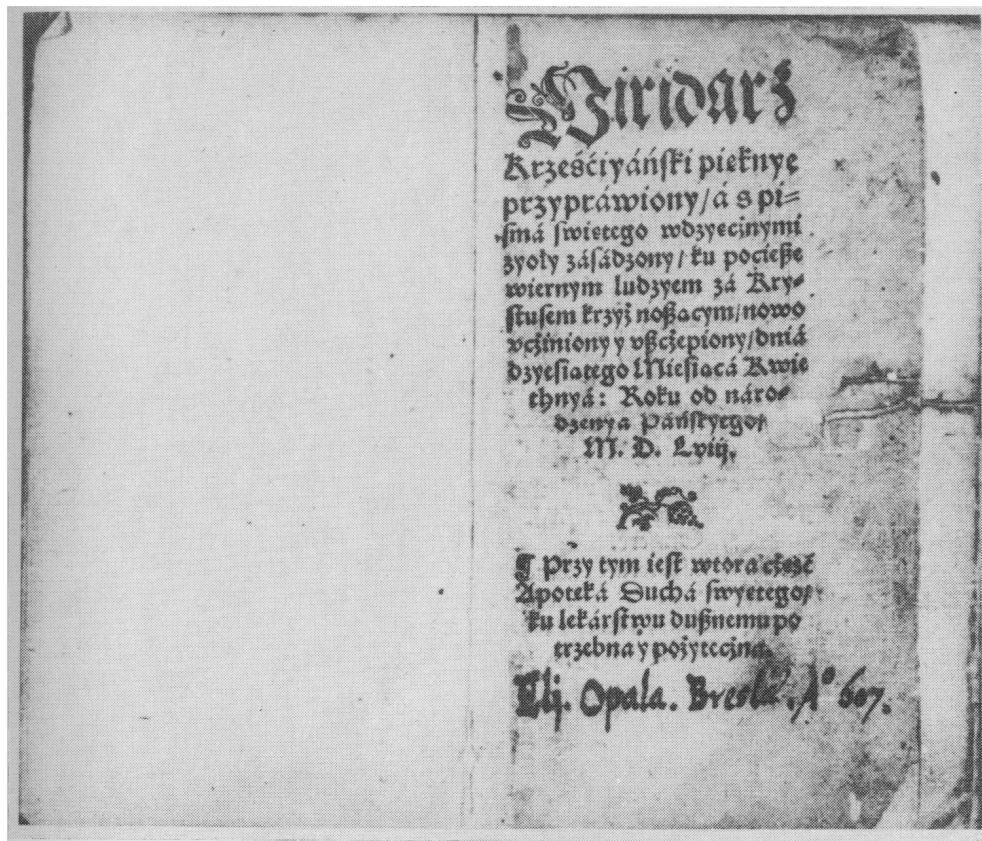 Wiridarz
Krześćiyáński pieknye
przypráwiony/ á s pi⸗
smá swietego wdzyecznymi
zyoły zásádzony/ ku pociesze
wiernym ludzyem zá Kry⸗
stusem krzyż noszacym/ nowo
vcżiniony y vszcżepiony/ dniá
dzyesiatego Miesiacá Kwie
thnyá: Roku od náro⸗
dzenya Páńskyego/
M. D. Lviij.
¶ Przy tym iest wtora cżeść
Apoteká Duchá swyetego/
ku lekárstwu dusznemu po
trzebna y pożytecżna.
Opala. Bresla. Aº 607.